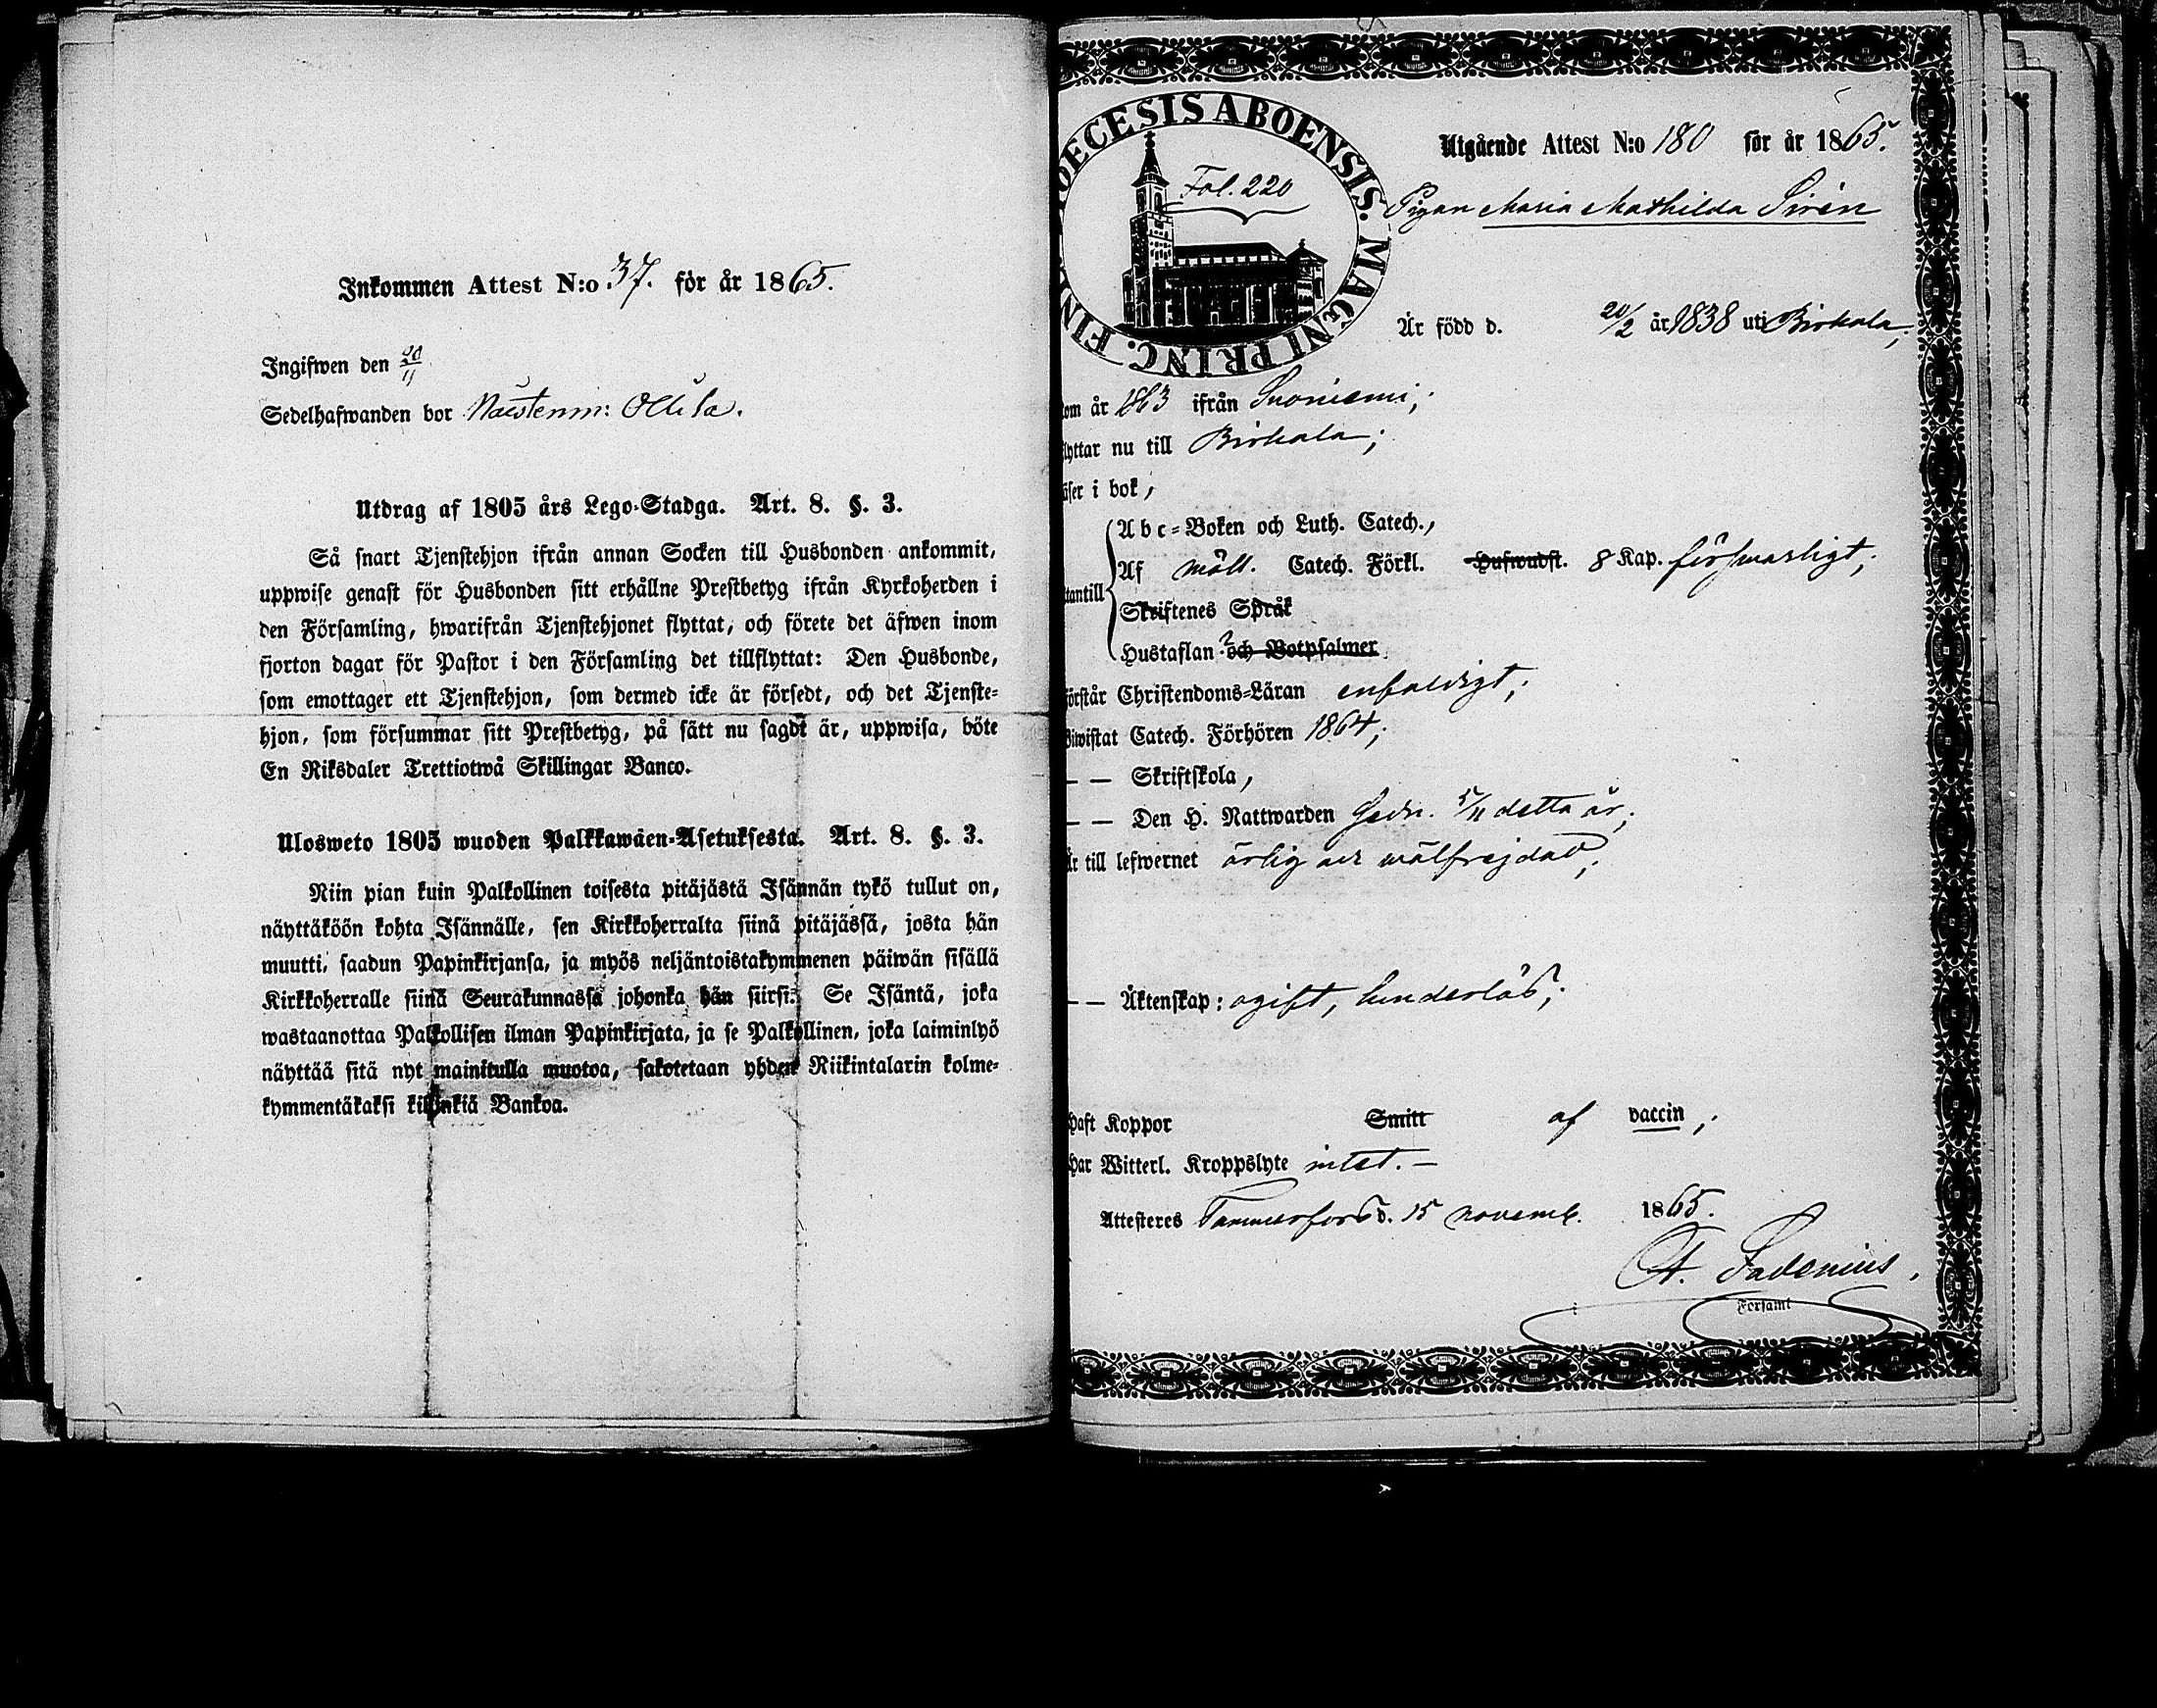 Inkommen Attest N:o 37. för år 1865.
Ingifwen den 20/11
Sedelhafwanden bor Naistenm: Ollila.
Utdrag af 1805 års Lego-Stadga. Art. 8. §. 3.
Så snart Tjenstehjon ifrån annan Socken till Husbonden ankommit,
uppwise genast för Husbonden sitt erhållne Prestbetyg ifrån Kyrkoherden i
den Församling, hwarifrån Tjenstehjonet flyttat, och förete det äfwen inom
fjorton dagar för Pastor i den Församling det tillflyttat: Den Husbonde,
som emottager ett Tjenstehjon, som dermed icke är försedt, och det Tjenste-
hjon, som försummar sitt Prestbetyg, på sätt nu sagdt är, uppwisa, böte
En Riksdaler Trettiotwå Skillingar Banco.
Ulosweto 1805 wuoden Palkkawäen-Asetuksesta. Art. 8. §. 3.
Niin pian kuin Palkollinen toisesta pitäjästä Isännän tykö tullut on,
näyttäköön kohta Isännälle, sen Kirkkoherralta siinä pitäjässä, josta hän
muutti, saadun Papinkirjansa, ja myös neljäntoistakymmenen päiwän sisällä
Kirkkoherralle siinä Seurakunnassa johonka hän siirsi: Se Isäntä, joka
wastaanottaa Palkollisen ilman Papinkirjata, ja se Palkollinen, joka laiminlyö
näyttää sitä nyt mainitulla muotoa, sakotetaan yhden Riikintalarin kolme-
kymmentäkaksi killinkiä Bankoa.
DIOECESIS ABOENSIS. MAGNI PRINC. FIN
Fol. 220
Utgående Attest N:o 180 för år 1865.
Pigan Maria Mathilda Sirén
Är född d. 20/2 år 1838 uti Birkala,
om år 1863 ifrån Suoniemi;
lyttar nu till Birkala;
äser i bok,
Abc-Boken och Luth. Catech.,
Af möll. Catech. Förkl. Hufwudst. 8 Kap. försvarligt;
tantill
Skriftenes Språk
Hustaflan? och Botpsalmer
örstår Christendoms-Läran enfaldigt;
Biwistat Catech. Förhören 1864;
— — Skriftskola,
— — Den H. Nattwarden sedn. 5/11 detta år;
Är till lefwernet ärlig och wälfrejdad;
— — Äktenskap: ogift, hinderlös;
Haft Koppor Smitt af vaccin,
Har Witterl. Kroppslyte intet. —
Attesteres Tammerfors d. 15 novemb. 1865.
Församl